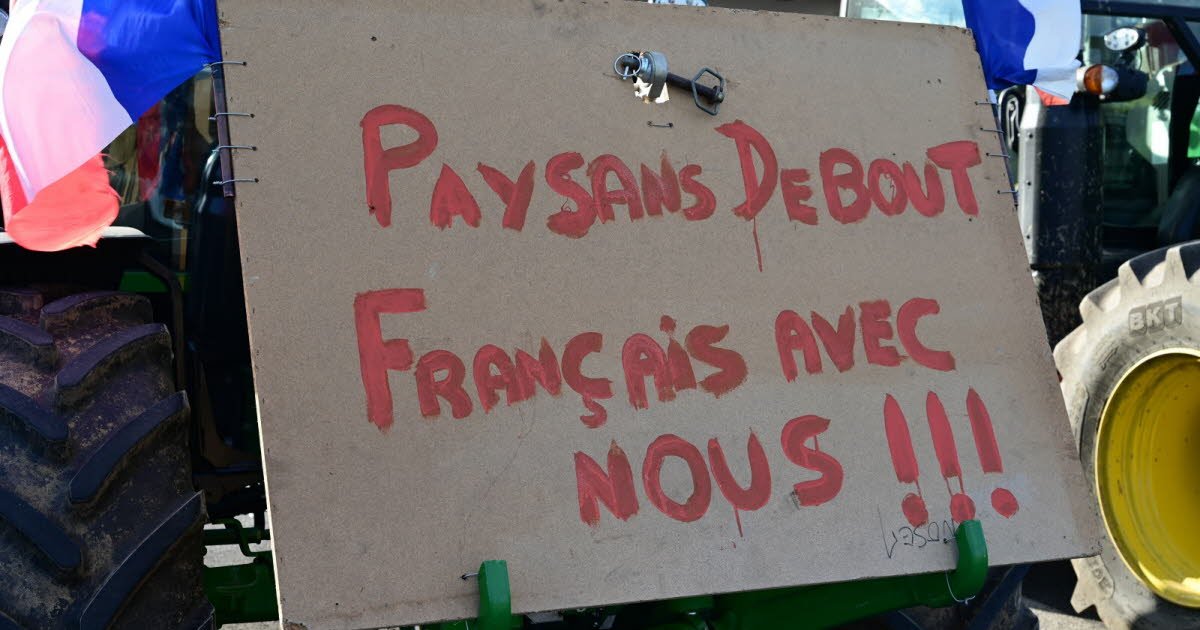 PAYSANS DEBOUT
FRANÇAIS AVEC
NOUS !!!
BKT